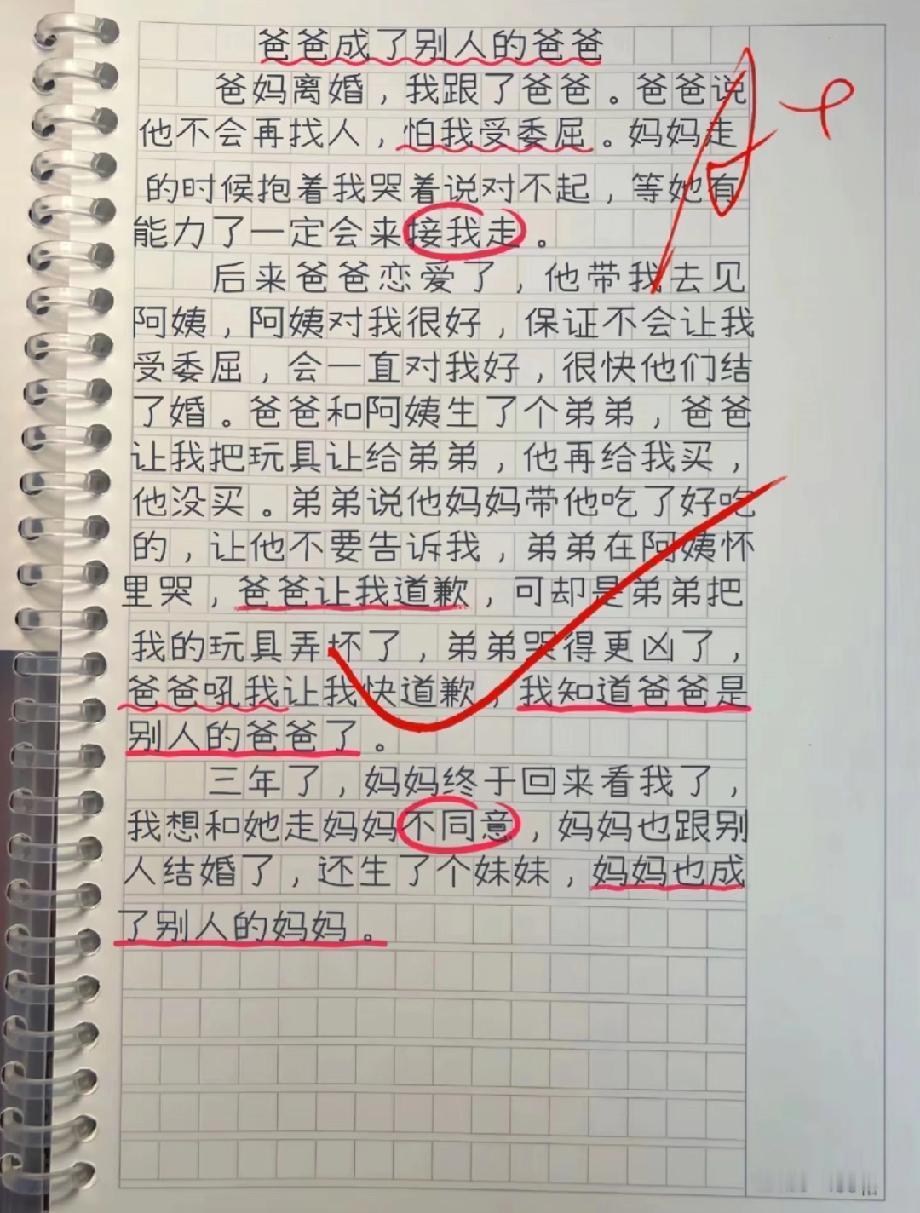 爸爸成了别人的爸爸
爸妈离婚，我跟了爸爸。爸爸说
他不会再找人，怕我受委屈。妈妈走
的时候抱着我哭着说对不起，等她有
能力了一定会来接我走。
后来爸爸恋爱了，他带我去见
阿姨，阿姨对我很好，保证不会让我
受委屈，会一直对我好，很快他们结
了婚。爸爸和阿姨生了个弟弟，爸爸
让我把玩具让给弟弟，他再给我买，
他没买。弟弟说他妈妈带他吃了好吃
的，让他不要告诉我，弟弟在阿姨怀
里哭，爸爸让我道歉，可却是弟弟把
我的玩具弄坏了，弟弟哭得更凶了，
爸爸吼我让我快道歉，我知道爸爸是
别人的爸爸了。
三年了，妈妈终于回来看我了，
我想和她走妈妈不同意，妈妈也跟别
人结婚了，还生了个妹妹，妈妈也成
了别人的妈妈。